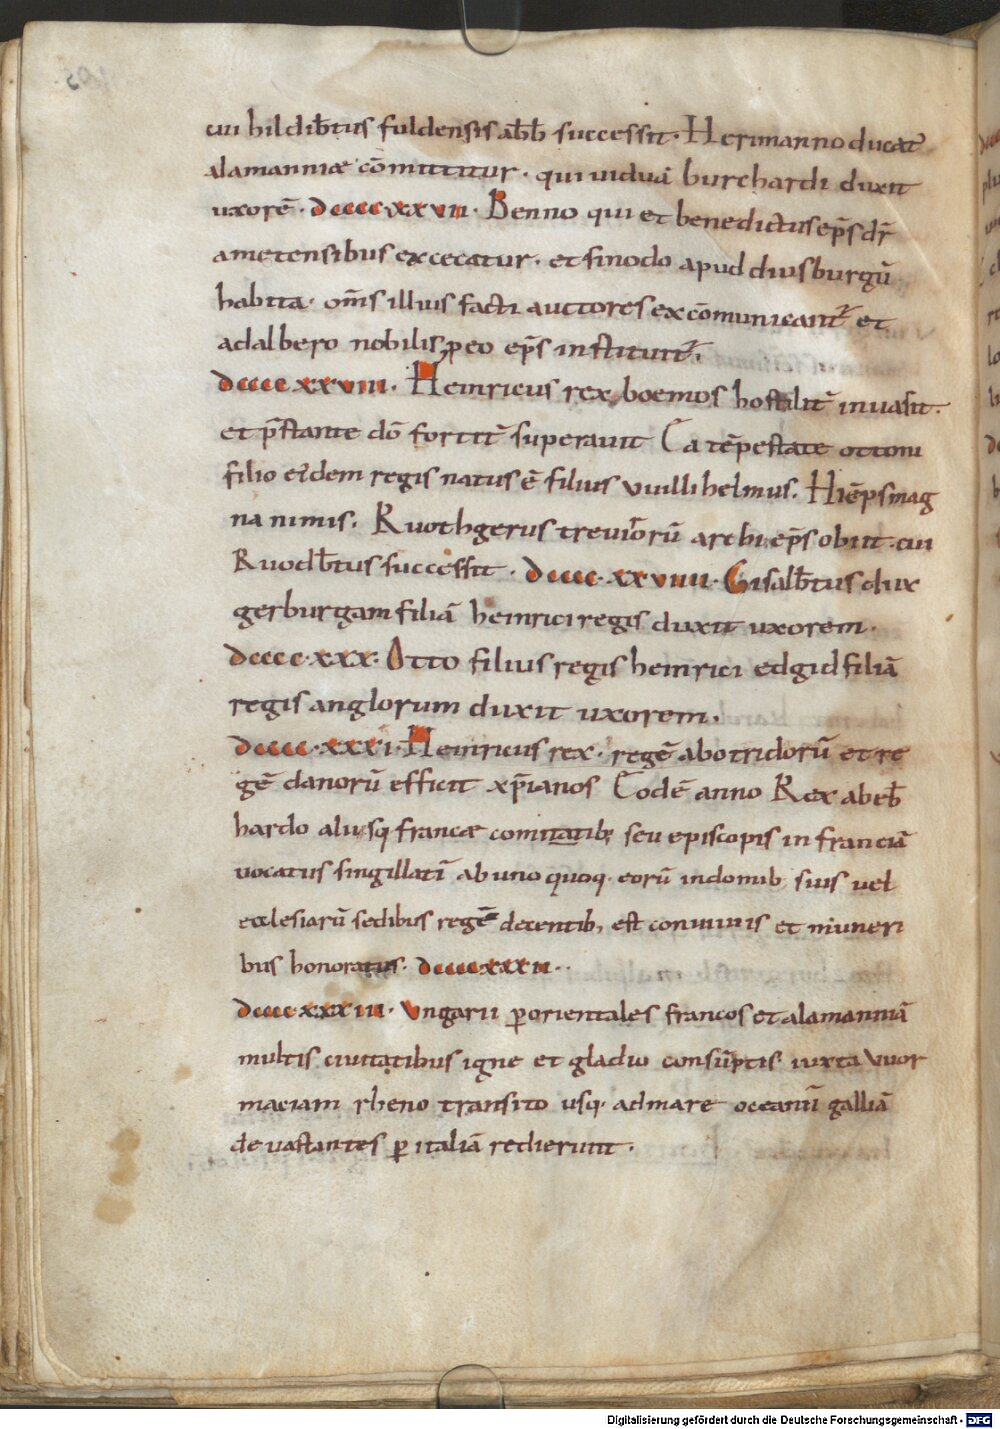 cui hildib̄tus fuldensis ab̄b successit· Herimanno ducat᷒
alamanniæ cōmittitur· qui uiduā burchardi duxit
uxorē· dcccc·xxvii· Benno qui et benedictus ep̄s dr̄
a metensibus excecatur· et sinodo apud diusburgū
habita· om̄s illius facti auctores excōmunicant᷒ et
adalbero nobilis ꝓ eo ep̄s instituit᷒·
dcccc·xxviii· Heinricus rex boemos hostilit̄ inuasit·
et p̄stante dō fortit̄ superauit Ea tēpestate ottoni
filio eidem regis natus ē filius vuillihelmus. Hiēps mag
na nimis. Ruothgerus treuirorū archiep̄s obiit· cui
Ruodb̄tus successit· dcccc·xxviiii· Gisalb̄tus dux
gerburgam filiā heinrici regis duxit uxorem·
dcccc·xxx· Otto filius regis heinrici edgid filiā
regis anglorum duxit uxorem·
dcccc·xxxi· Heinricus rex· regē abotridorū et re
gē danorū efficit xp̄ianos Eodē anno Rex ab eb̄
hardo aliisq; francæ comitatib; seu episcopis in franciā
uocatus singillatī ab uno quoq· eorū in domib; suis uel
ecclesiarū sedibus regē decentib; est conuiuiis et muneri
bus honoratus· dcccc·xxxii··
dcccc·xxxiii· Vngarii ꝑ orientales francos et alamanniā
multis ciuitatibus igne et gladio consūptis· iuxta vuor
maciam rheno transito usq· ad mare oceanū galliā
deuastantes ꝑ italiā redierunt·
Digitalisierung gefördert durch die Deutsche Forschungsgemeinschaft - DFG